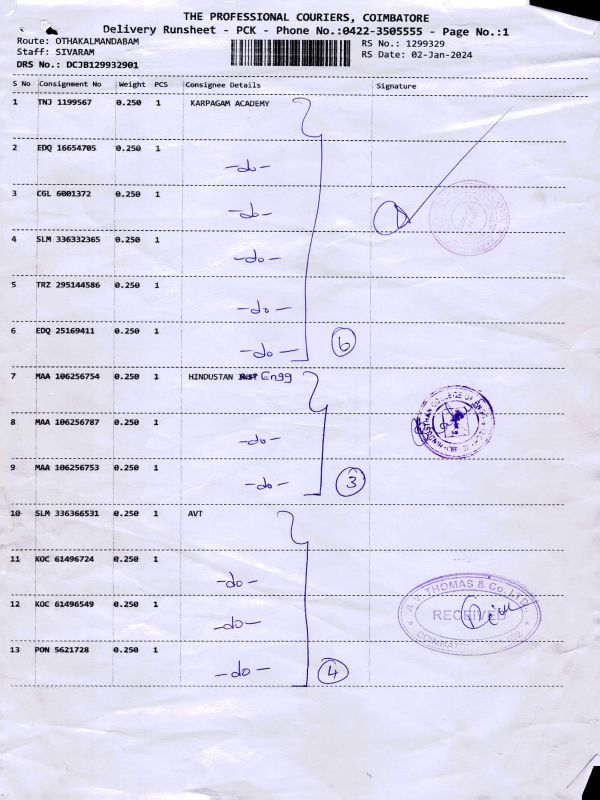 THE PROFESSIONAL COURIERS, COIMBATORE
Delivery Runsheet - PCK - Phone No.:0422-3505555 - Page No.:1
Route: OTHAKALMANDABAM
RS No.: 1299329
Staff: SIVARAM
RS Date: 02-Jan-2024
DRS No.: DCJB129932901
S No Consignment No Weight PCS Consignee Details Signature
1 TNJ 1199567 0.250 1 KARPAGAM ACADEMY
2 EDQ 16654705 0.250 1
-do-
3 CGL 6001372 0.250 1
-do-
4 SLM 336332365 0.250 1
-do-
5 TRZ 295144586 0.250 1
-do-
6 EDQ 25169411 0.250 1
-do- 6
7 MAA 106256754 0.250 1 HINDUSTAN Engg
8 MAA 106256787 0.250 1
-do-
9 MAA 106256753 0.250 1
-do- 3
10 SLM 336366531 0.250 1 AVT
11 KOC 61496724 0.250 1
-do-
12 KOC 61496549 0.250 1
-do-
A.V. THOMAS & Co. LTD
RECEIVED
13 PON 5621728 0.250 1
-do- 4